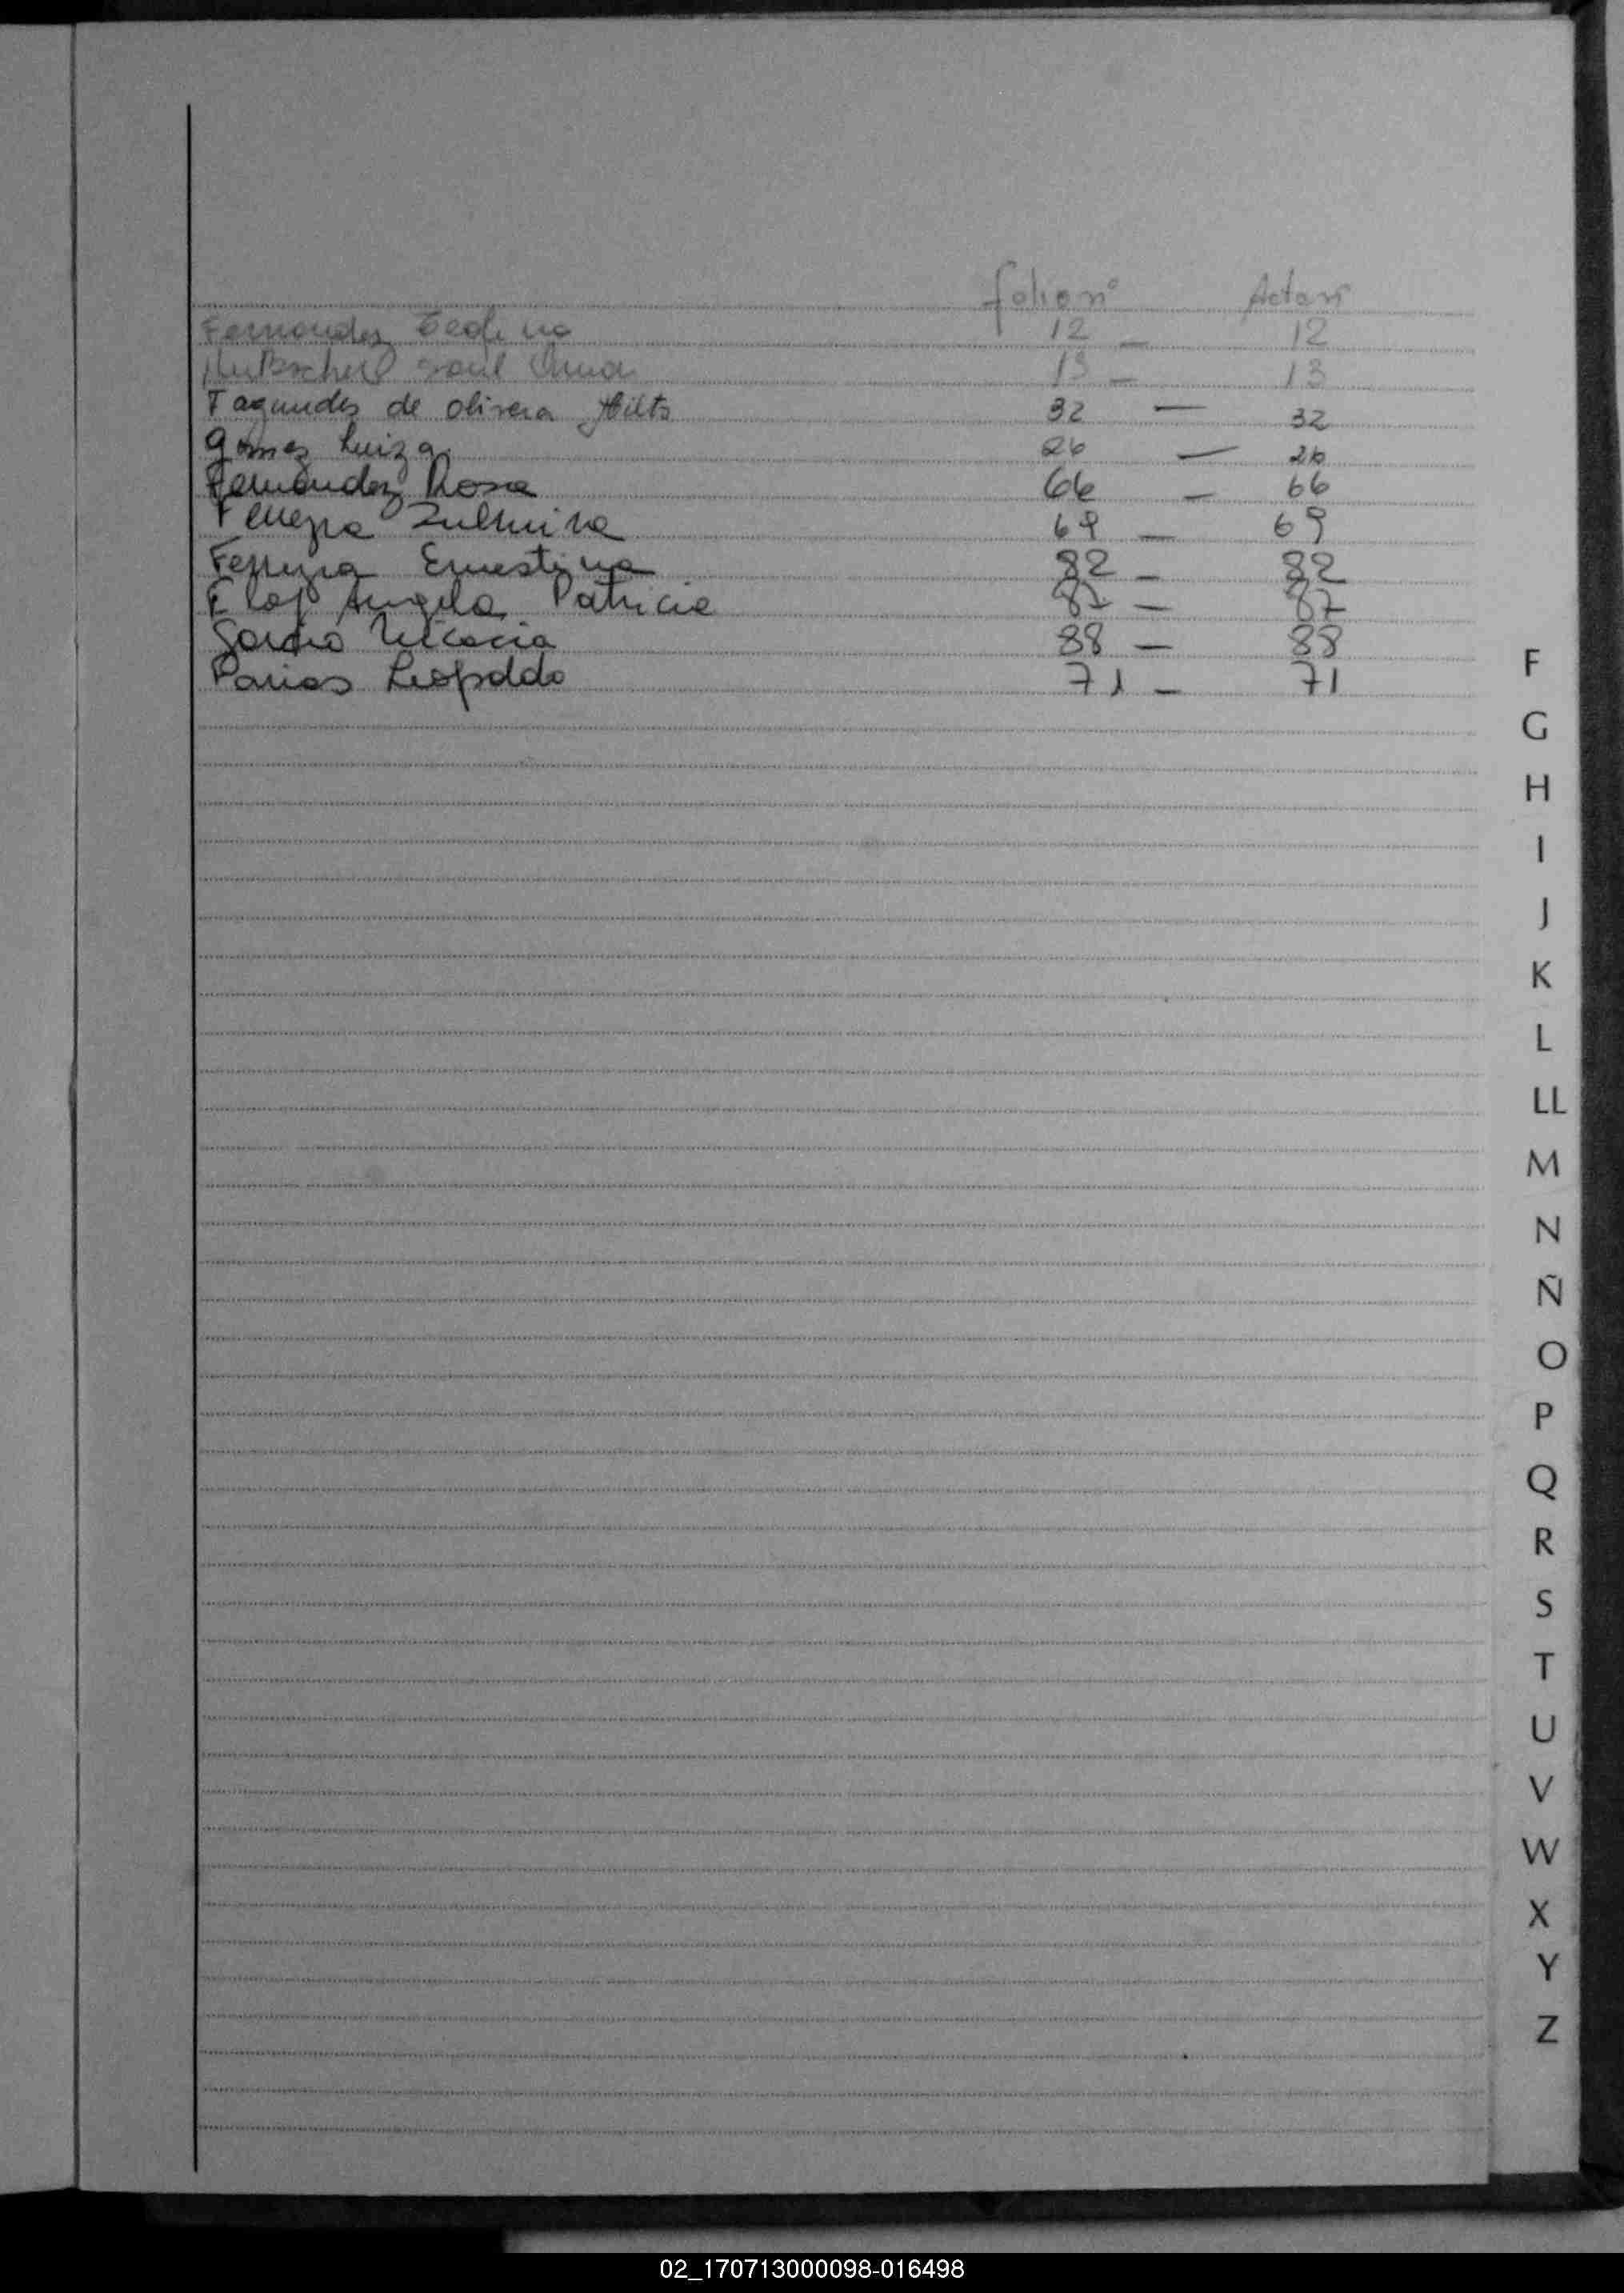 folio nº Acta nº
Fernandez 12 - 12
13 - 13
Fagundes de olivera Hilto 32 - 32
gomes Luiza 26 - 26
Fernandez Rosa 66 - 66
Ferreyra Zulmira 69 - 69
Ferreyra Ernestina 82 - 82
Angela Patricia 87 - 87
88 - 88
Farias Leopoldo 71 - 71
F
G
H
I
J
K
L
LL
M
N
Ñ
O
P
Q
R
S
T
U
V
W
X
Y
Z
02_170713000098-016498